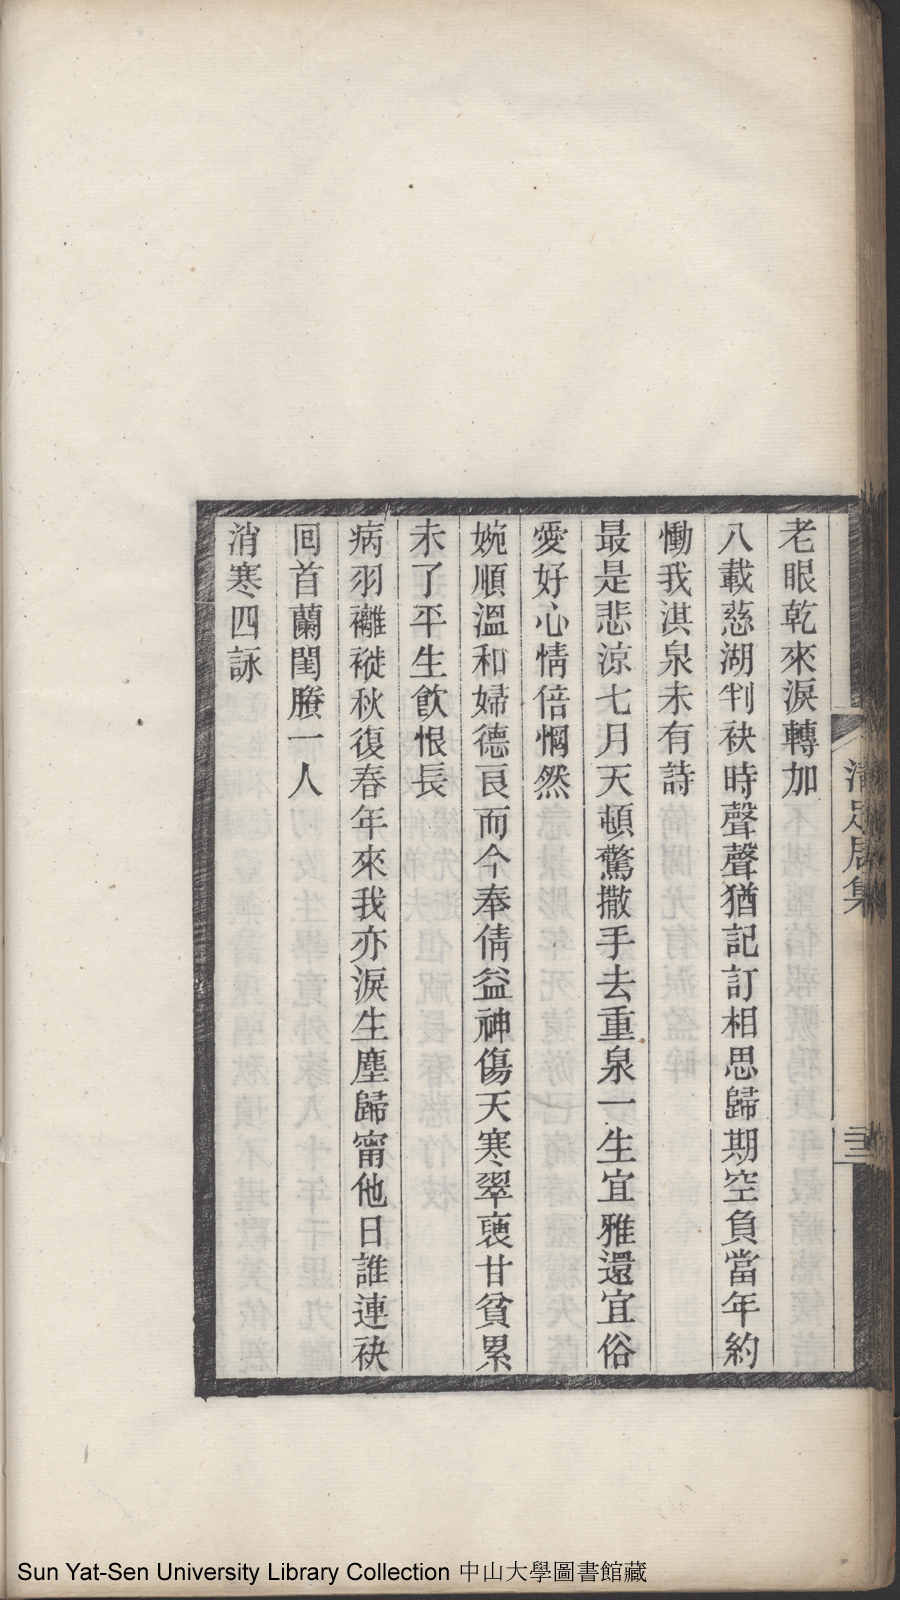 老眼乾來淚轉加
八載慈湖判袂時聲聲猶記訂相思歸期空負當年約
慟我淇泉未有詩
最是悲涼七月天頓驚撒手去重泉一生宜雅還宜俗
愛好心情倍惘然
婉順溫和婦德良而今奉倩益神傷天寒翠褎甘貧累
未了平生飮恨長
病羽褵褷秋復春年來我亦淚生塵歸甯他日誰連袂
回首蘭閨賸一人
消寒四詠
清足居集
Sun Yat-Sen University Library Collection 中山大學圖書館藏